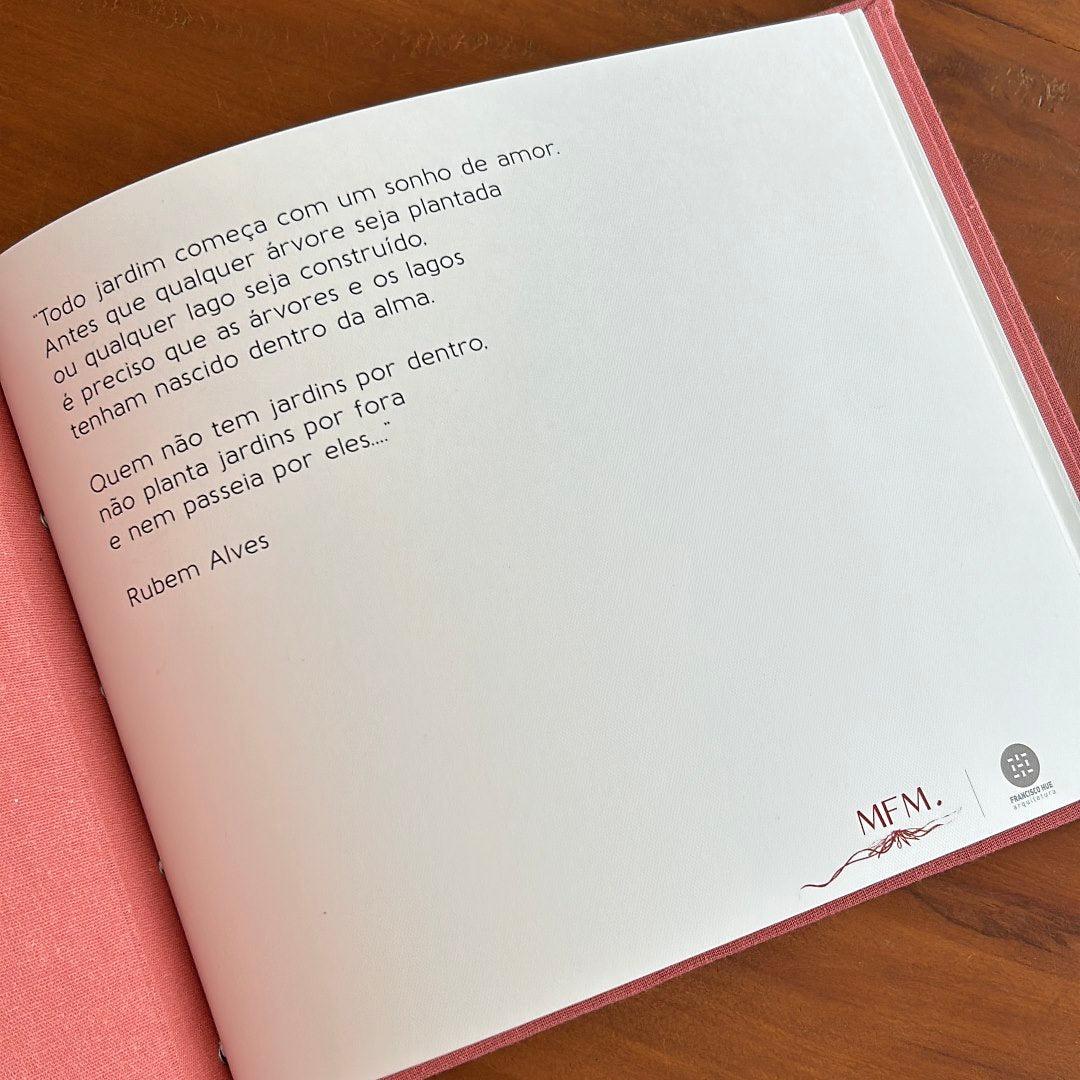 "Todo jardim começa com um sonho de amor.
Antes que qualquer árvore seja plantada
ou qualquer lago seja construído,
é preciso que as árvores e os lagos
tenham nascido dentro da alma.
Quem não tem jardins por dentro,
não planta jardins por fora
e nem passeia por eles...."
Rubem Alves
MFM.
FRANCISCO HUE
arquitetura